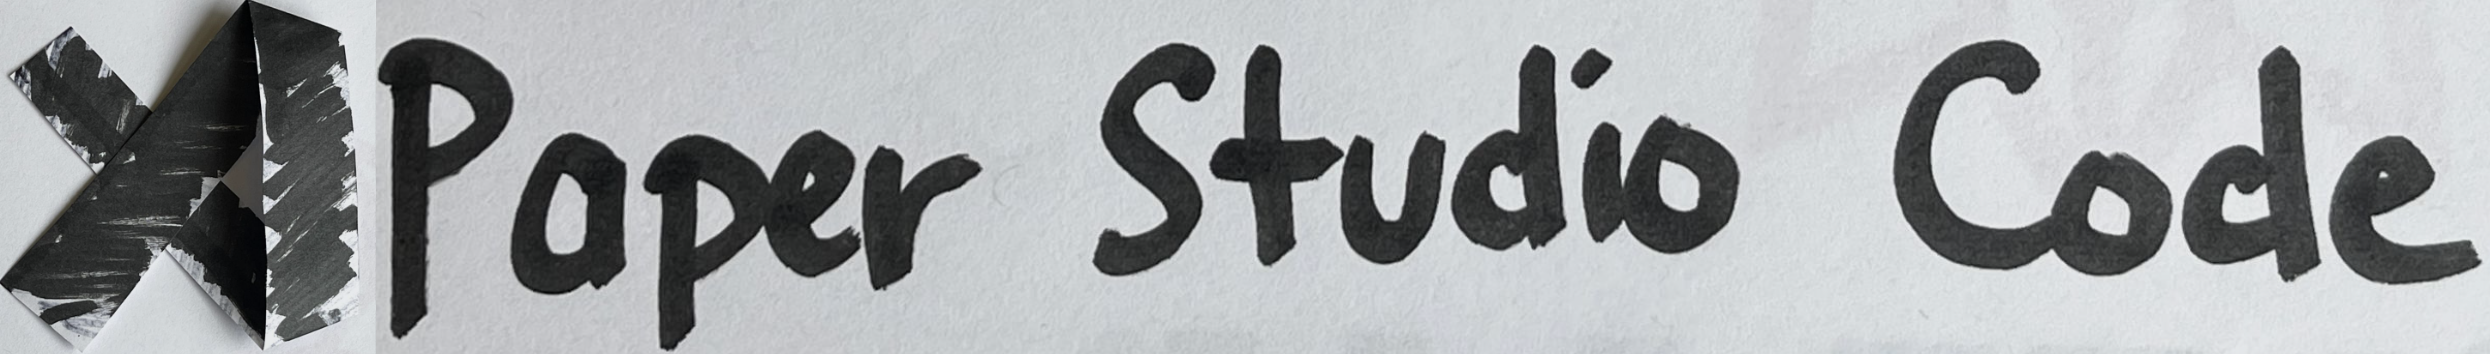 Paper Studio Code